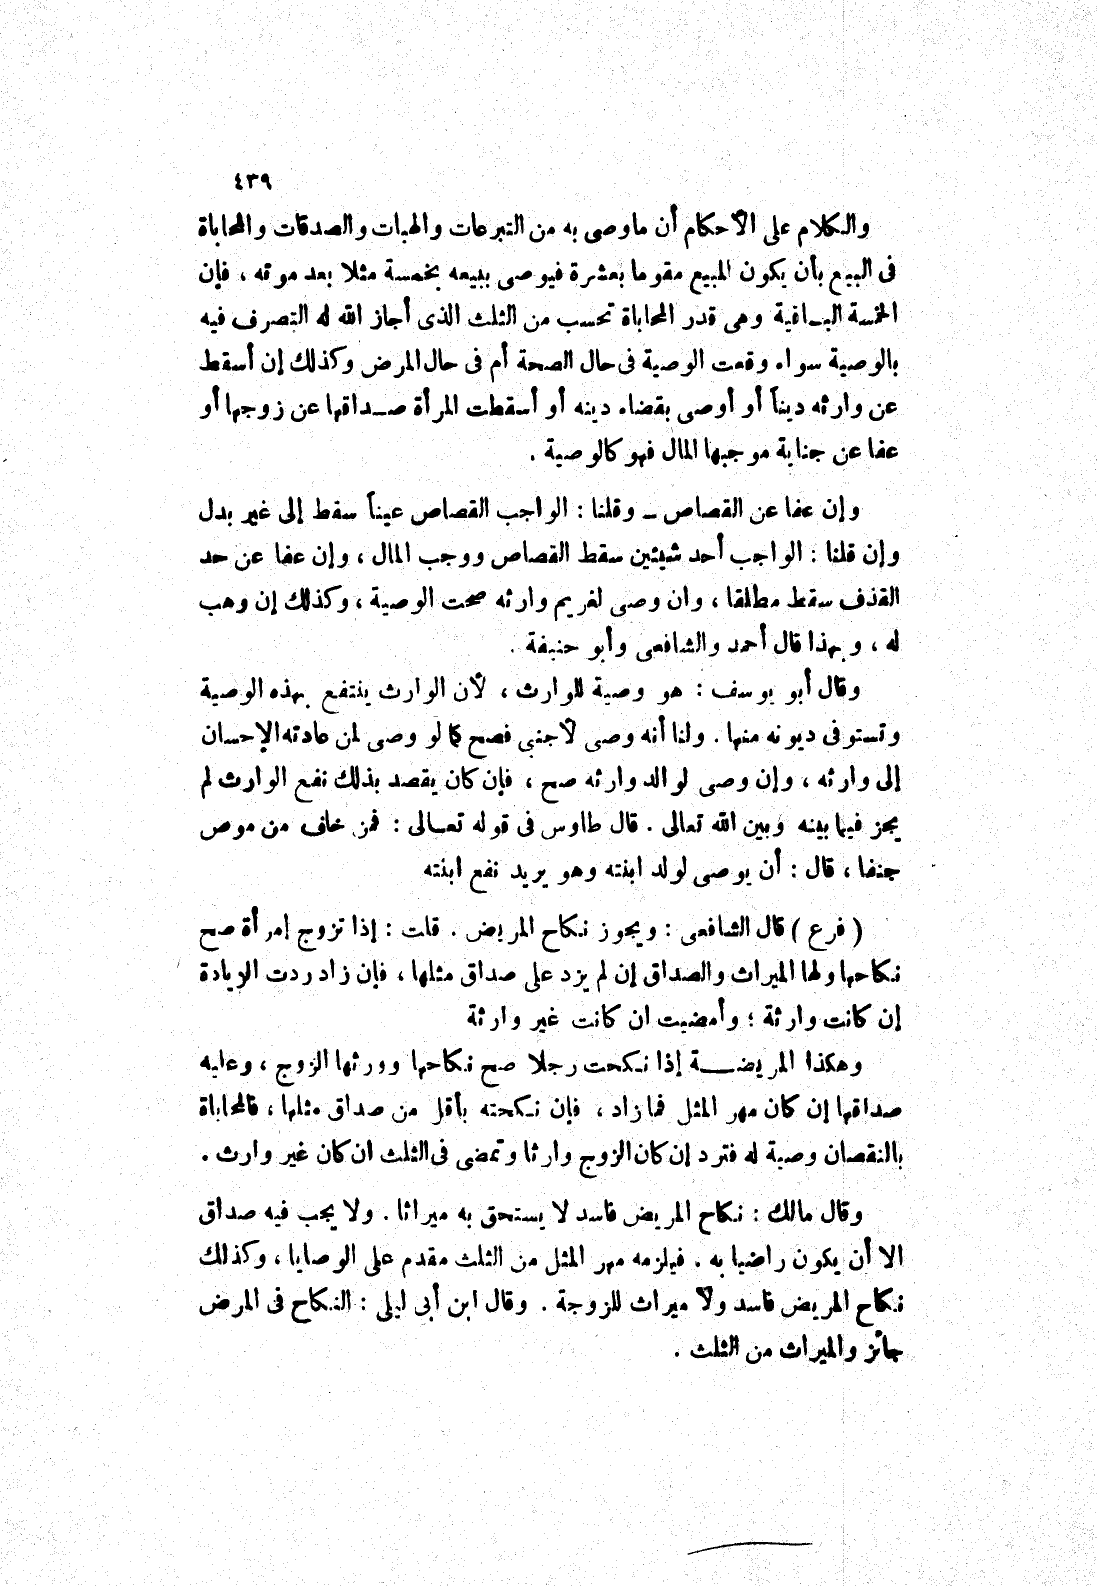 ٤٣٩
والكلام على الأحكام أن ماوصى به من التبرعات والهبات والصدقات والمحاباة
فى البيع بأن يكون المبيع مقوما بعشرة فيوصى ببيعه بخمسة مثلا بعد موته ، فإن
الخمسة البـاقية وهى قدر المحاباة تحسب من الثلث الذى أجاز الله له التصرف فيه
بالوصية سواء وقعت الوصية فى حال الصحة أم فى حال المرض وكذلك إن أسقط
عن وارثه ديناً أو أوصى بقضاء دينه أو أسقطت المرأة صـداقها عن زوجها أو
عفا عن جناية موجبها المال فهو كالوصية .
وإن عفا عن القصاص ــ وقلنا : الواجب القصاص عيناً سقط إلى غير بدل
وإن قلنا : الواجب أحد شيئين سقط القصاص ووجب المال ، وإن عفا عن حد
القذف سقط مطلقا ، وان وصى لغريم وارثه صحت الوصية ، وكذلك إن وهب
له ، وبهذا قال أحمد والشافعى وأبو حنيفة .
وقال أبو يوسف : هو وصية للوارث ، لأن الوارث ينتفع بهذه الوصية
وتستوفى ديونه منها . ولنا أنه وصى لأجنبى فصح كما لو وصى لمن عادته الإحسان
إلى وارثه ، وإن وصى لوالد وارثه صح ، فإن كان يقصد بذلك نفع الوارث لم
يجز فيما بينه وبين الله تعالى . قال طاوس فى قوله تعـالى : فمن خاف من موص
جنفا ، قال : أن يوصى لولد ابنته وهو يريد نفع ابنته
( فرع ) قال الشافعى : ويجوز نكاح المريض . قلت : إذا تزوج إمرأة صح
نكاحها ولها الميراث والصداق إن لم يزد على صداق مثلها ، فإن زاد ردت الزيادة
إن كانت وارثة ؛ وأمضيت ان كانت غير وارثة
وهكذا المريضـــة إذا نكحت رجلا صح نكاحها وورثها الزوج ، وعليه
صداقها إن كان مهر المثل فما زاد ، فإن نكحته بأقل من صداق مثلها ، فالمحاباة
بالنقصان وصية له فترد إن كان الزوج وارثا وتمضى فى الثلث ان كان غير وارث .
وقال مالك : نكاح المريض فاسد لا يستحق به ميراثا . ولا يجب فيه صداق
الا أن يكون راضيا به . فيلزمه مهر المثل من الثلث مقدم على الوصايا ، وكذلك
نكاح المريض فاسد ولا ميراث للزوجة . وقال ابن أبى ليلى : النكاح فى المرض
جائز والميراث من الثلث .